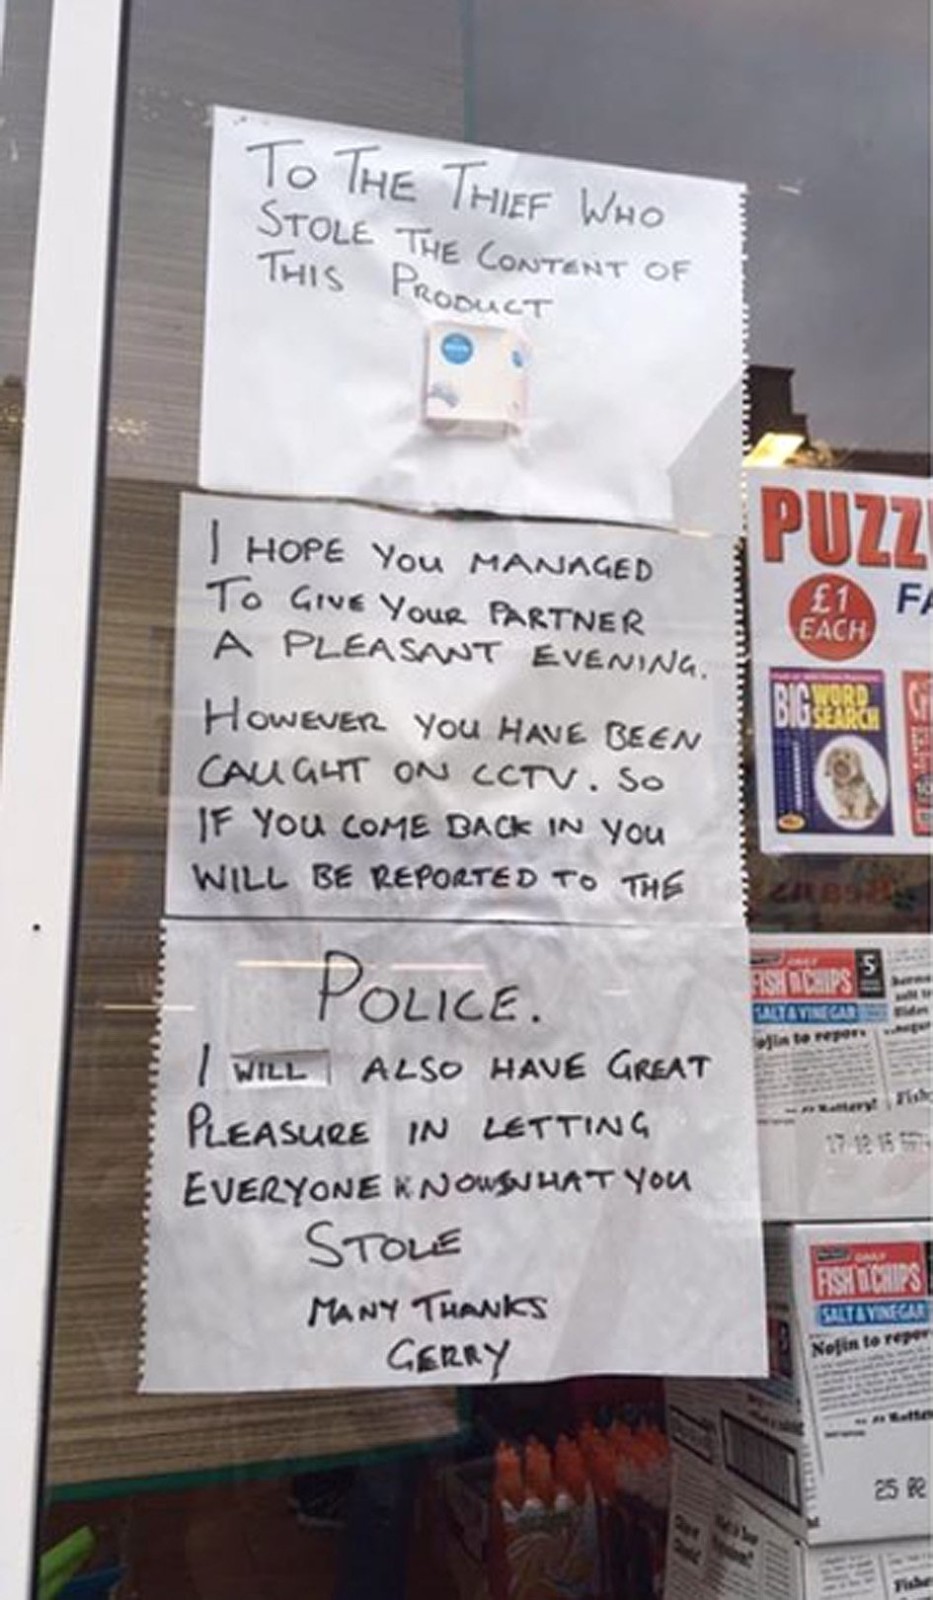 TO THE THIEF WHO
STOLE THE CONTENT OF
THIS PRODUCT
I HOPE YOU MANAGED
TO GIVE YOUR PARTNER
A PLEASANT EVENING.
HOWEVER YOU HAVE BEEN
CAUGHT ON CCTV. SO
IF YOU COME BACK IN YOU
WILL BE REPORTED TO THE
POLICE.
I WILL ALSO HAVE GREAT
PLEASURE IN LETTING
EVERYONE KNOW WHAT YOU
STOLE
MANY THANKS
GERRY
PUZZ
£1
EACH
FA
BIG WORD
SEARCH
DAILY
FISH 'N' CHIPS
5
SALT & VINEGAR
ofin to report
DAILY
FISH 'N' CHIPS
SALT & VINEGAR
Nofin to repor
25 02